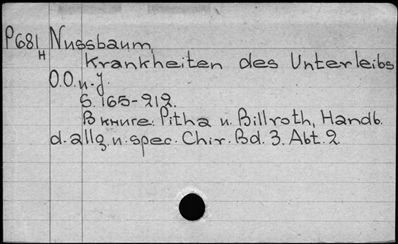 P681 Nussbaum,
H Krankheiten des Unterleibs
O.O.u.J.
S. 165-212.
В книге: Pitha u. Billroth, Handb.
d. allg. u. spec. Chir. Bd. 3. Abt. 2